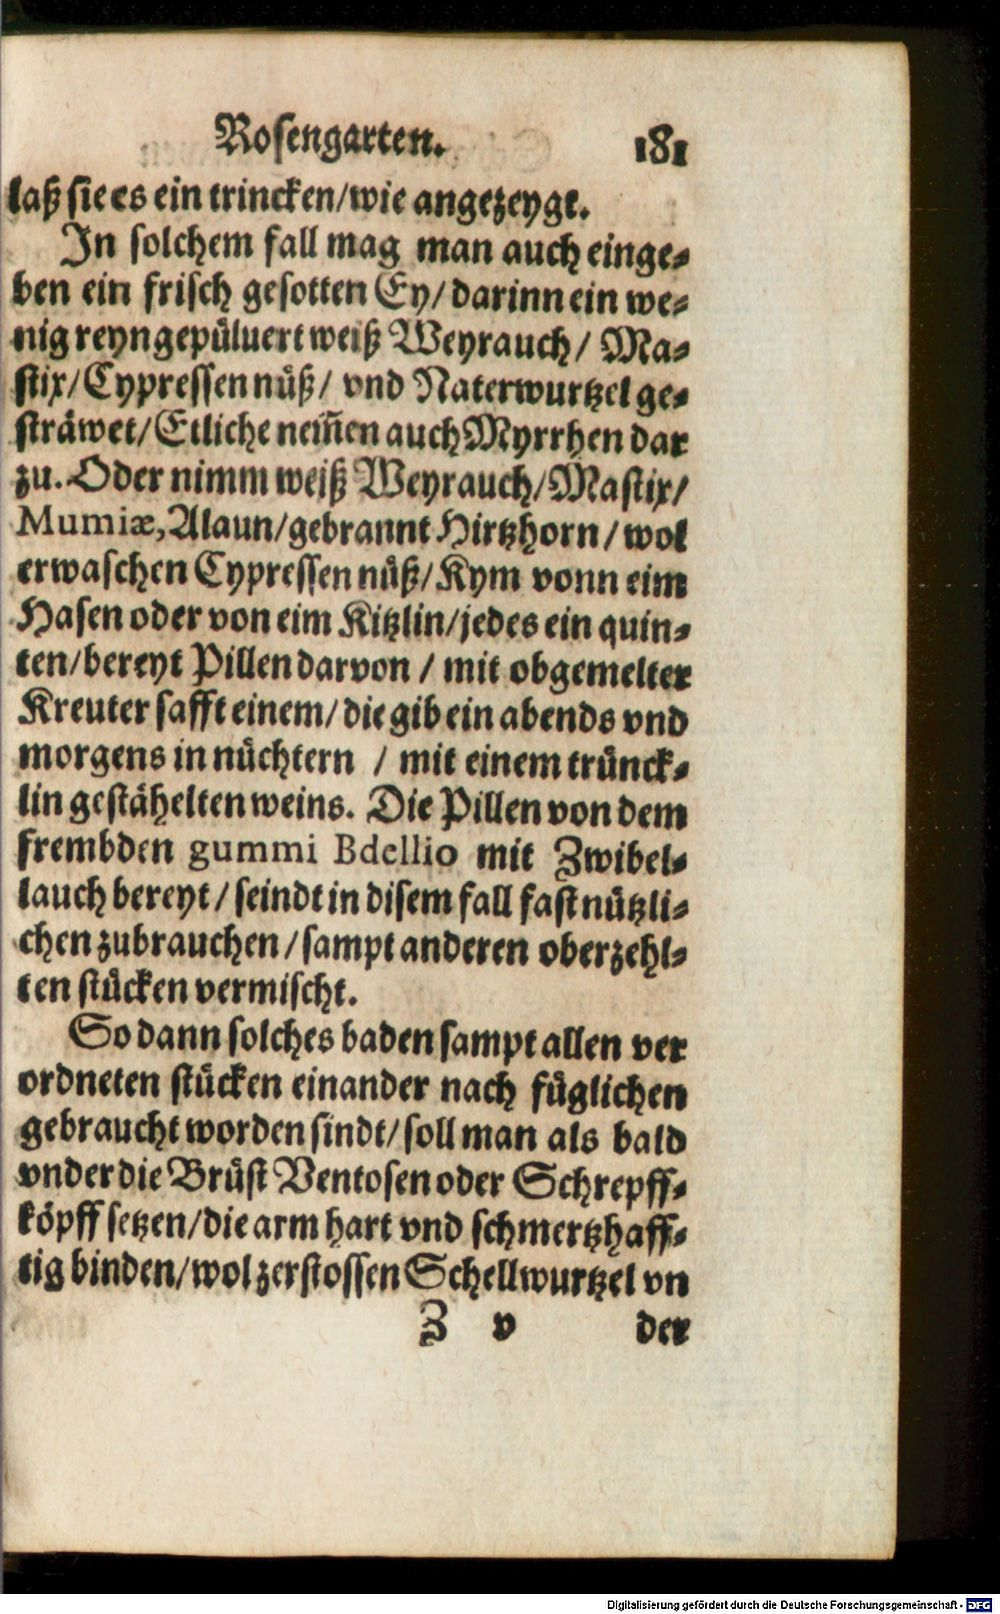 Rosengarten. 181
laß sie es ein trincken/wie angezeygt.
In solchem fall mag man auch einge⸗
ben ein frisch gesotten Ey/darinn ein we⸗
nig reyn gepüluert weiß Weyrauch/ Ma⸗
stix/Cypressen nüß/ vnd Naterwurtzel ge⸗
sträwet/Etliche nem̃en auch Myrrhen dar
zu. Oder nimm weiß Weyrauch/Mastix/
Mumiæ, Alaun/gebrannt Hirtzhorn/wol
erwaschen Cypressen nüß/Kym vonn eim
Hasen oder von eim Kitzlin/jedes ein quin⸗
ten/bereyt Pillen darvon / mit obgemelter
Kreuter safft einem/die gib ein abends vnd
morgens in nüchtern / mit einem trünck⸗
lin gestähelten weins. Die Pillen von dem
frembden gummi Bdellio mit Zwibel⸗
lauch bereyt/seindt in disem fall fast nützli⸗
chen zubrauchen/sampt anderen oberzehl⸗
ten stücken vermischt.
So dann solches baden sampt allen ver
ordneten stücken einander nach füglichen
gebraucht worden sindt/soll man als bald
vnder die Brüst Ventosen oder Schrepff⸗
köpff setzen/die arm hart vnd schmertzhaff⸗
tig binden/wol zerstossen Schellwurtzel vn
Z v der
Digitalisierung gefördert durch die Deutsche Forschungsgemeinschaft - DFG